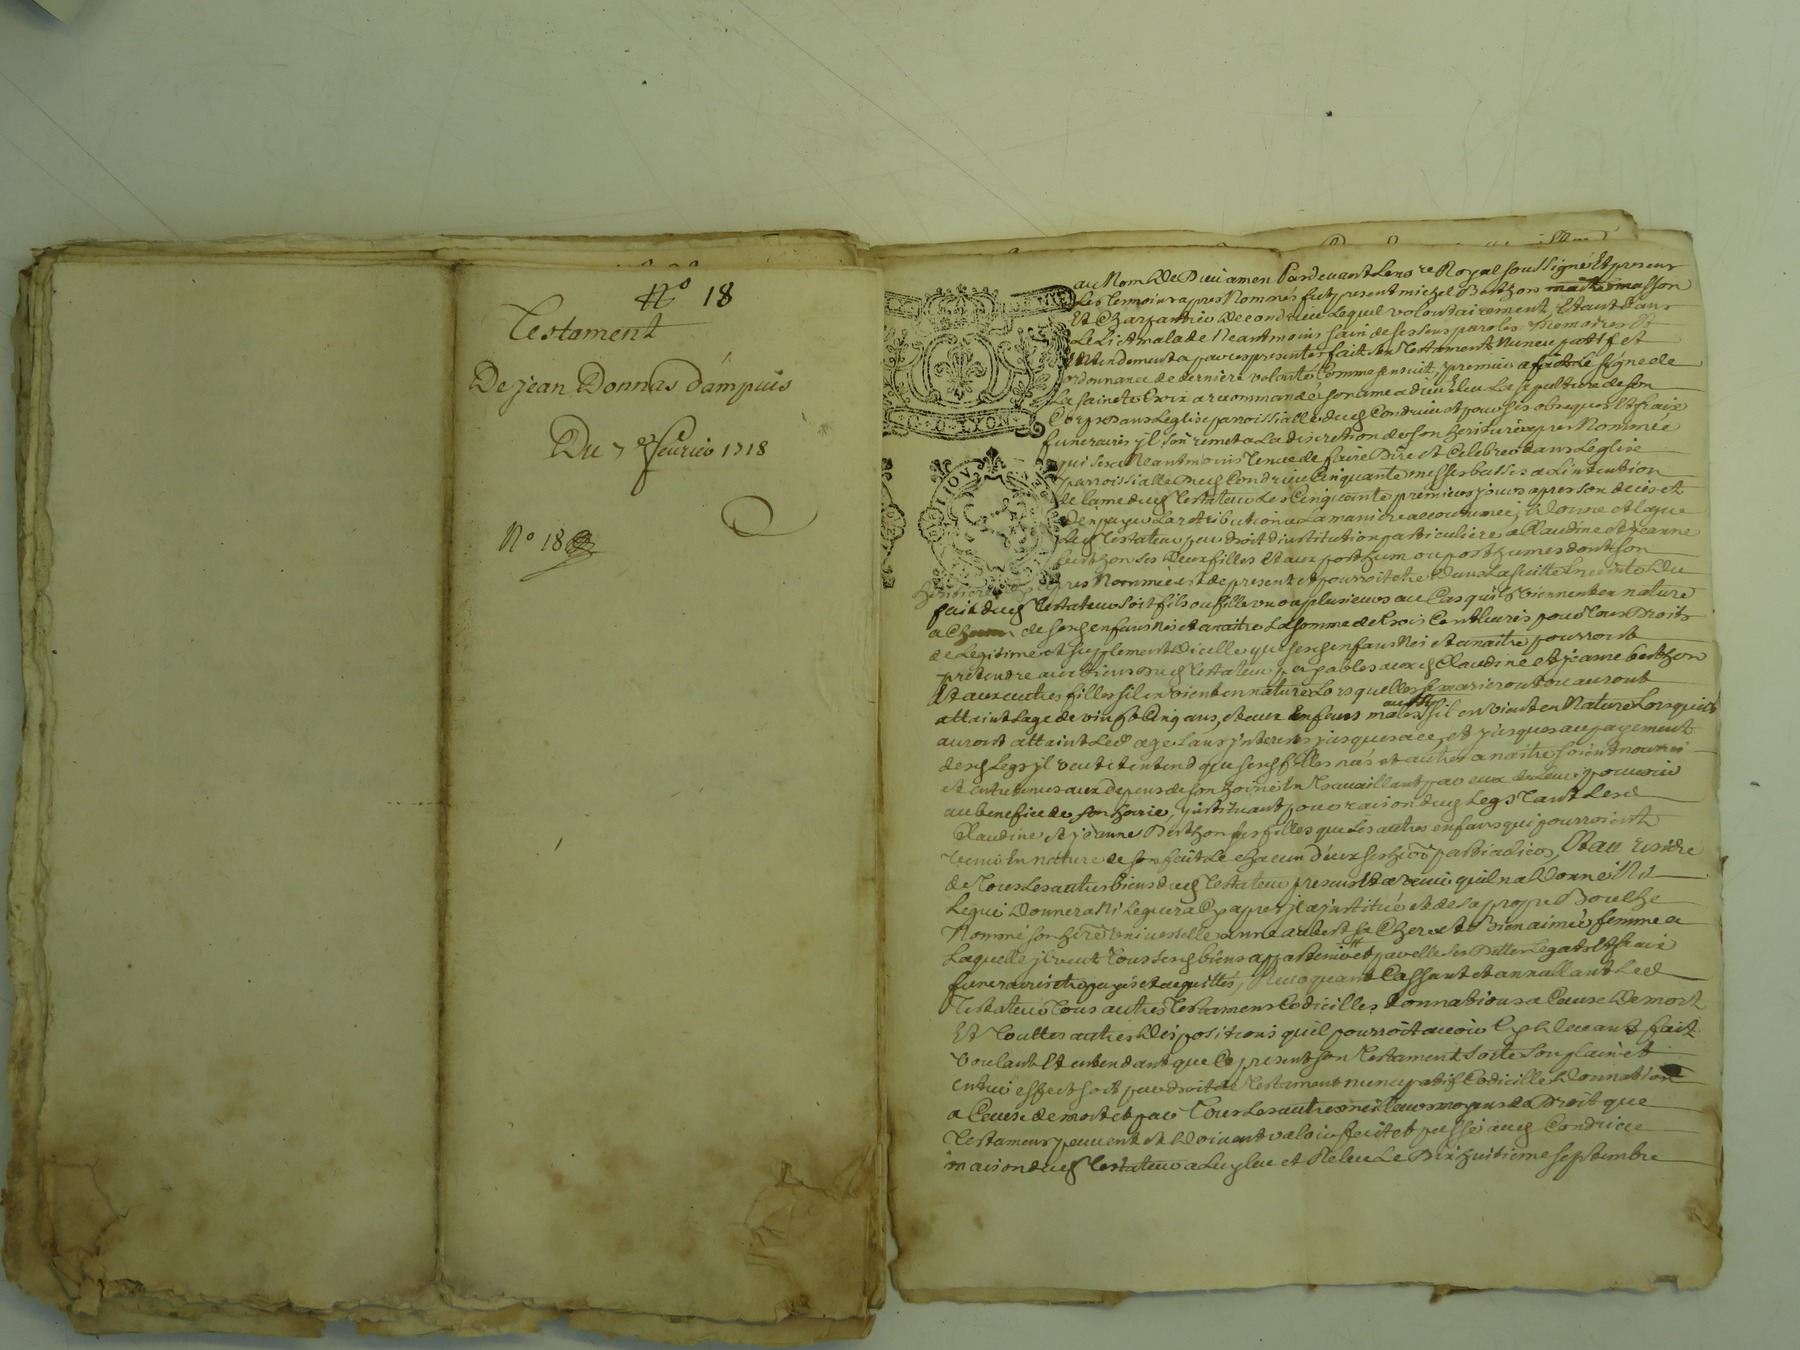 N° 18
Testament
De jean Donnas d'ampuis
Du 7e feurier 1718
N° 18
au Nom De Dieu amen Pardeuant Le no re Royal soussigné Et presens
Les temoins apres Nommés fut present michel Berthon maitre masson
Et Charpantier De condrieu Lequel volontairement, Etant dans
Le Lict malade Neantmoins sain de ses sens paroles memoires Et
Entendement a par ces presentes fait son Testament Nuncupatif et
ordonnance de derniere volonté Comme sensuit, premier a fait Le signe de
La saincte Croix a recommandé son ame a dieu Eleu La sepulture de son
Corps dans Leglise parroissialle dud Condrieu et pour ses obseques Et fraix
funeraires jl sen remet a La discretion de son heritiere apres Nommée
qui sera Neantmoins Tenue de faire Dire et Celebrer dans Leglise
parroissialle dud Condrieu Cinquante messes basses a Lintention
de Lame dud Testateur Les Cinquante premiers jours apres son deces et
Den payer La retribution a La maniere accoutumée; Donne et Legue
Led Testateur par droit d'institution particuliere a Claudine et jeanne
berthon ses Deux filles Et aux posthum ou posthumes dont son
heritiere apres Nommée est de present et pourroit etre Dans La suitte Enceinte Du
fait dud Testateur soit fils ou fille un ou plusieurs au Cas quils viennent en nature
a Chacun de sesd enfans Nés et a naitre La somme de trois Cent Liures pour tous Droits
de Legitime et suplement Dicelle que sesd enfans Nés et a naitre pourroient
pretendre aux biens dud Testateur, payables auxd Claudine et jeanne berthon
Et aux autres filles sil en vient en nature Lors quelles se marieront ou auront
attaint Lage de vingt Cinq ans, et aux Enfans males aussy sil en vient en Nature Lors quils
auront attaint Led age sans jnterests jusques a ce, et jusques au payement
desd Legs jl veut et entend que sesd filles nées et autres a naitre soient nourris
et Entretenus aux depens de son hoirie En Trauaillant par eux de Leur pouuoir
au benefice de son hoirie, jnstituant pour raison dud Legs Tant Lesd
Claudine et jeanne Berthon ses filles que Les autres enfans qui pourroient
venir En nature de son fait Le chacun d'eux ses hers particuliers, Et au residu
de Tous Les autres biens dud Testateur presens Et a venir quil n'a Donné Ni
Legué Donnera Ni Leguera Cy apres jl a jnstitué et de sa propre Bouche
Nommé son here vniuerselle anne aubert sa Chere et Bien aimée femme a
Laquelle jl veut Tous sesd biens appartenir Et par elle ses Dettes Legats Et fraix
funeraires etre payés et acquittés, Reuoquant Cassant et annullant Led
Testateur Tous autres Testamens Codicilles Donnations a Cause De mort
Et Touttes autres Dispositions quil pourroit auoir Cy Deuant fait
Voulant Et entendant que Ce present son Testament sorte son plain et
entier effect soit par droit de Testament nuncupatif Codicille Donnation
a Cause de mort et par Tous Les autres meilleurs moyens de Droit que
Testamens peuuent et Doiuent valoir fait et passé aud Condrieu
maison dud Testateur a Luy Leu et Releu Le Dix huitieme septembre